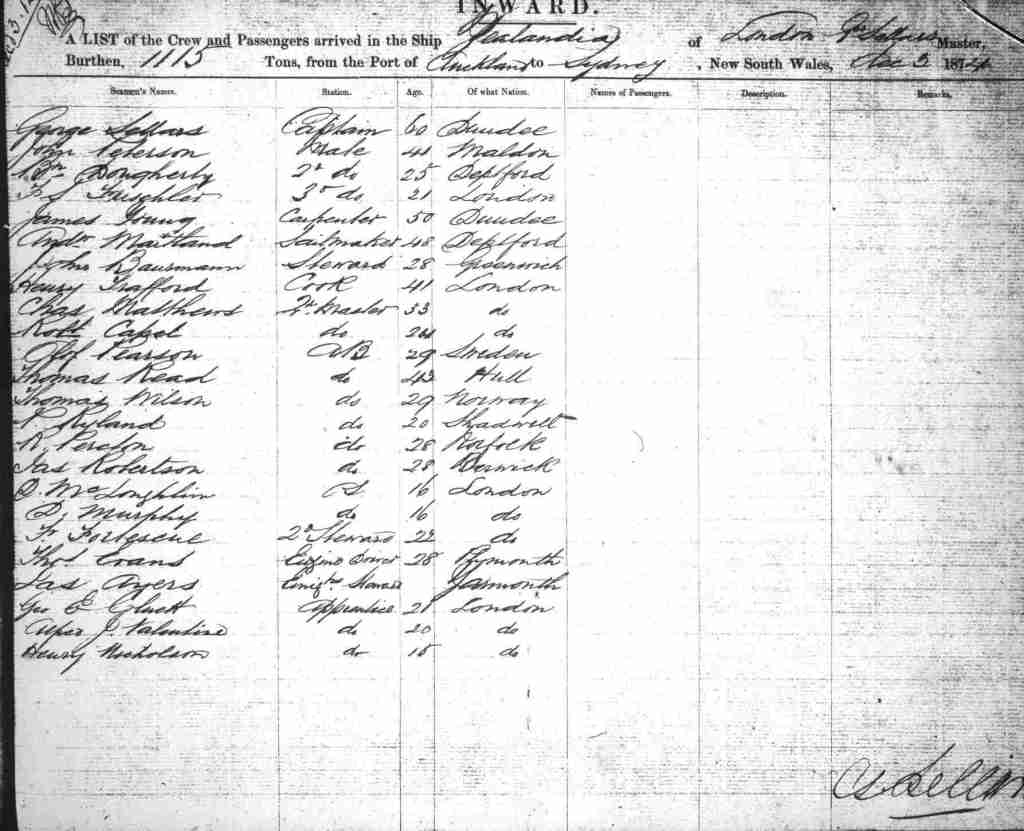 INWARD.
A LIST of the Crew and Passengers arrived in the Ship Zealandia of London Master,
Burthen, 1115 Tons, from the Port of Auckland to Sydney, New South Wales, Dec 3 1874
Seamen's Names. Station. Age. Of what Nation. Names of Passengers. Description. Remarks.
George Sellars Captain 60 Dundee
John Peterson Mate 41 Maldon
Wm Dougherty 2d do 25 Deptford
F J Frischler 3r do 21 London
James Young Carpenter 50 Dundee
Andw Maitland Sailmaker 48 Deptford
John Bausmann Steward 28 Greenwich
Henry Trafford Cook 41 London
Chas Matthews Qr Master 33 do
Robt Capel do 24 do
Olof Pearson AB 29 Sweden
Thomas Read do 43 Hull
Thomas Wilson do 29 Norway
P Ryland do 20 Shadwell
R. do 28 Norfolk
Jas Robertson do 28 Berwick
D. McLoughlin OS 16 London
D. Murphy do 16 do
Fr Fortescue 2d Steward 22 do
Thos Evans Engine Driver 28 Plymouth
Jas Ayers Emigts Steward Yarmouth
Geo E Gluett Apprentice 21 London
J. Valentine do 20 do
Henry Nicholson do 15 do